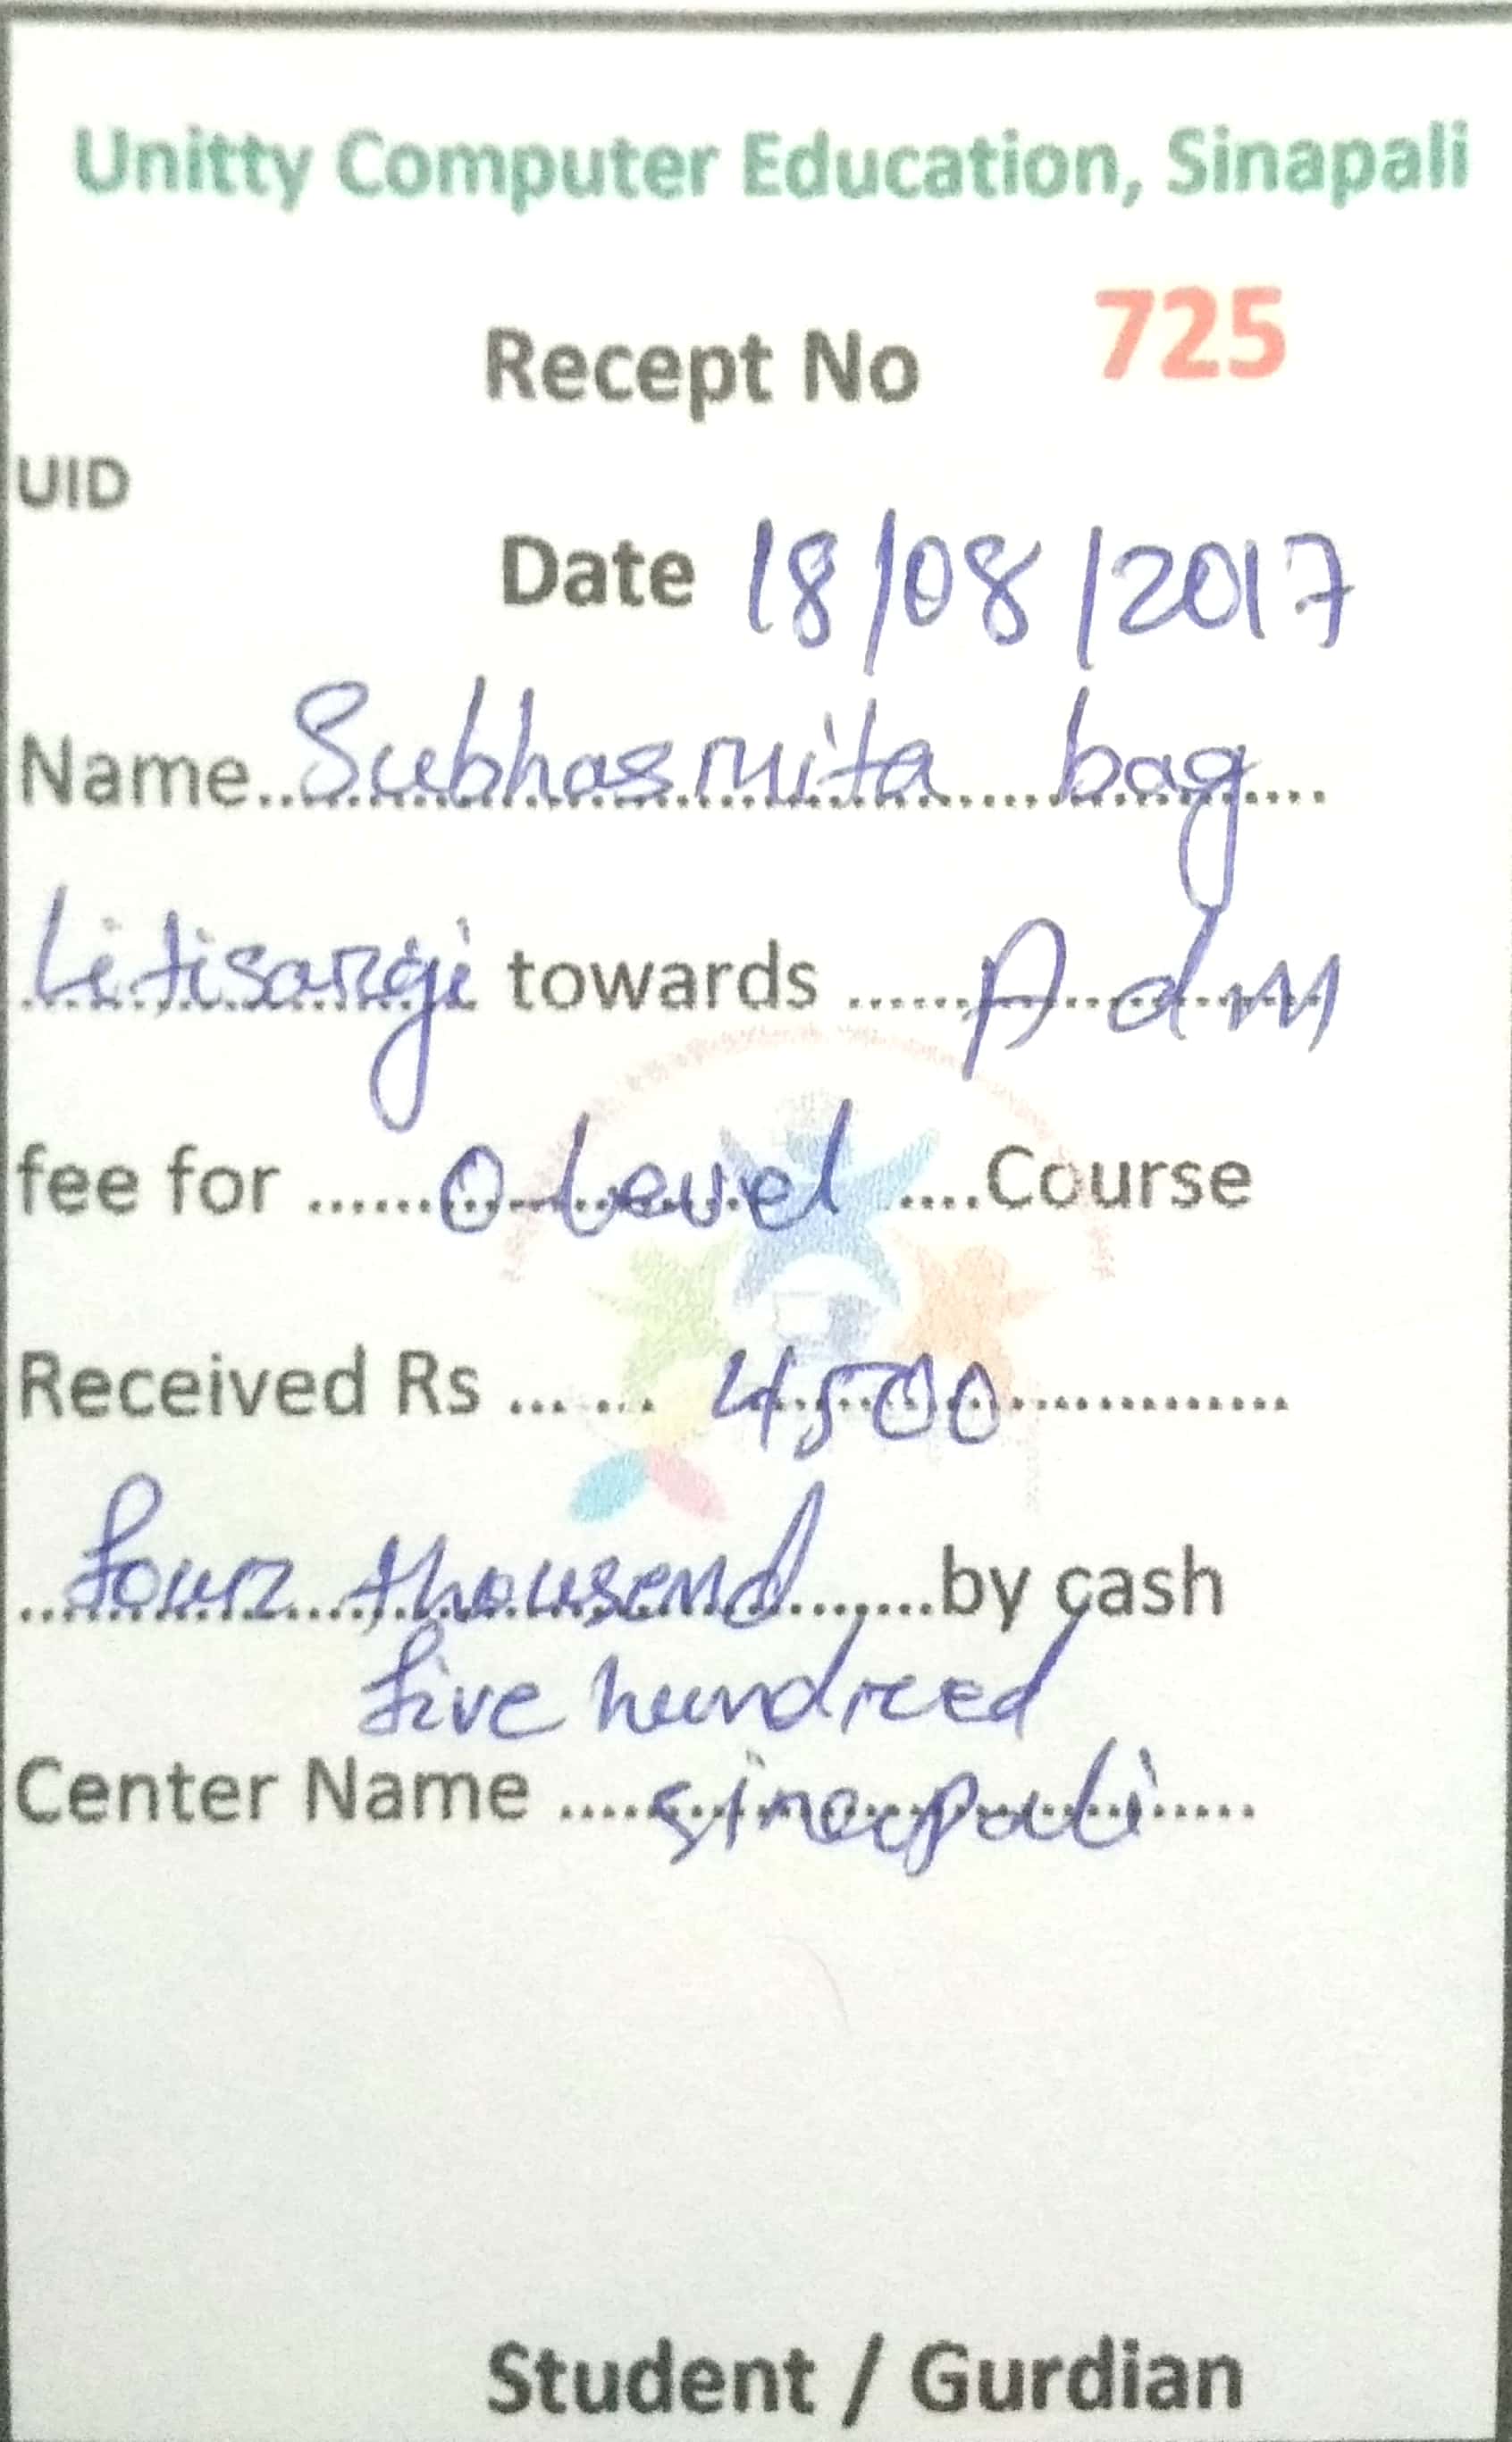 Unitty Computer Education, Sinapali
Recept No 725
UID
Date 18/08/2017
Name..Subhasmita bag....
Litisargi towards ......Adm
fee for ......O Level ....Course
Received Rs ... ... 4500..............
...four thousend.......by cash
five hundred
Center Name ....sinapali.....
Student / Gurdian